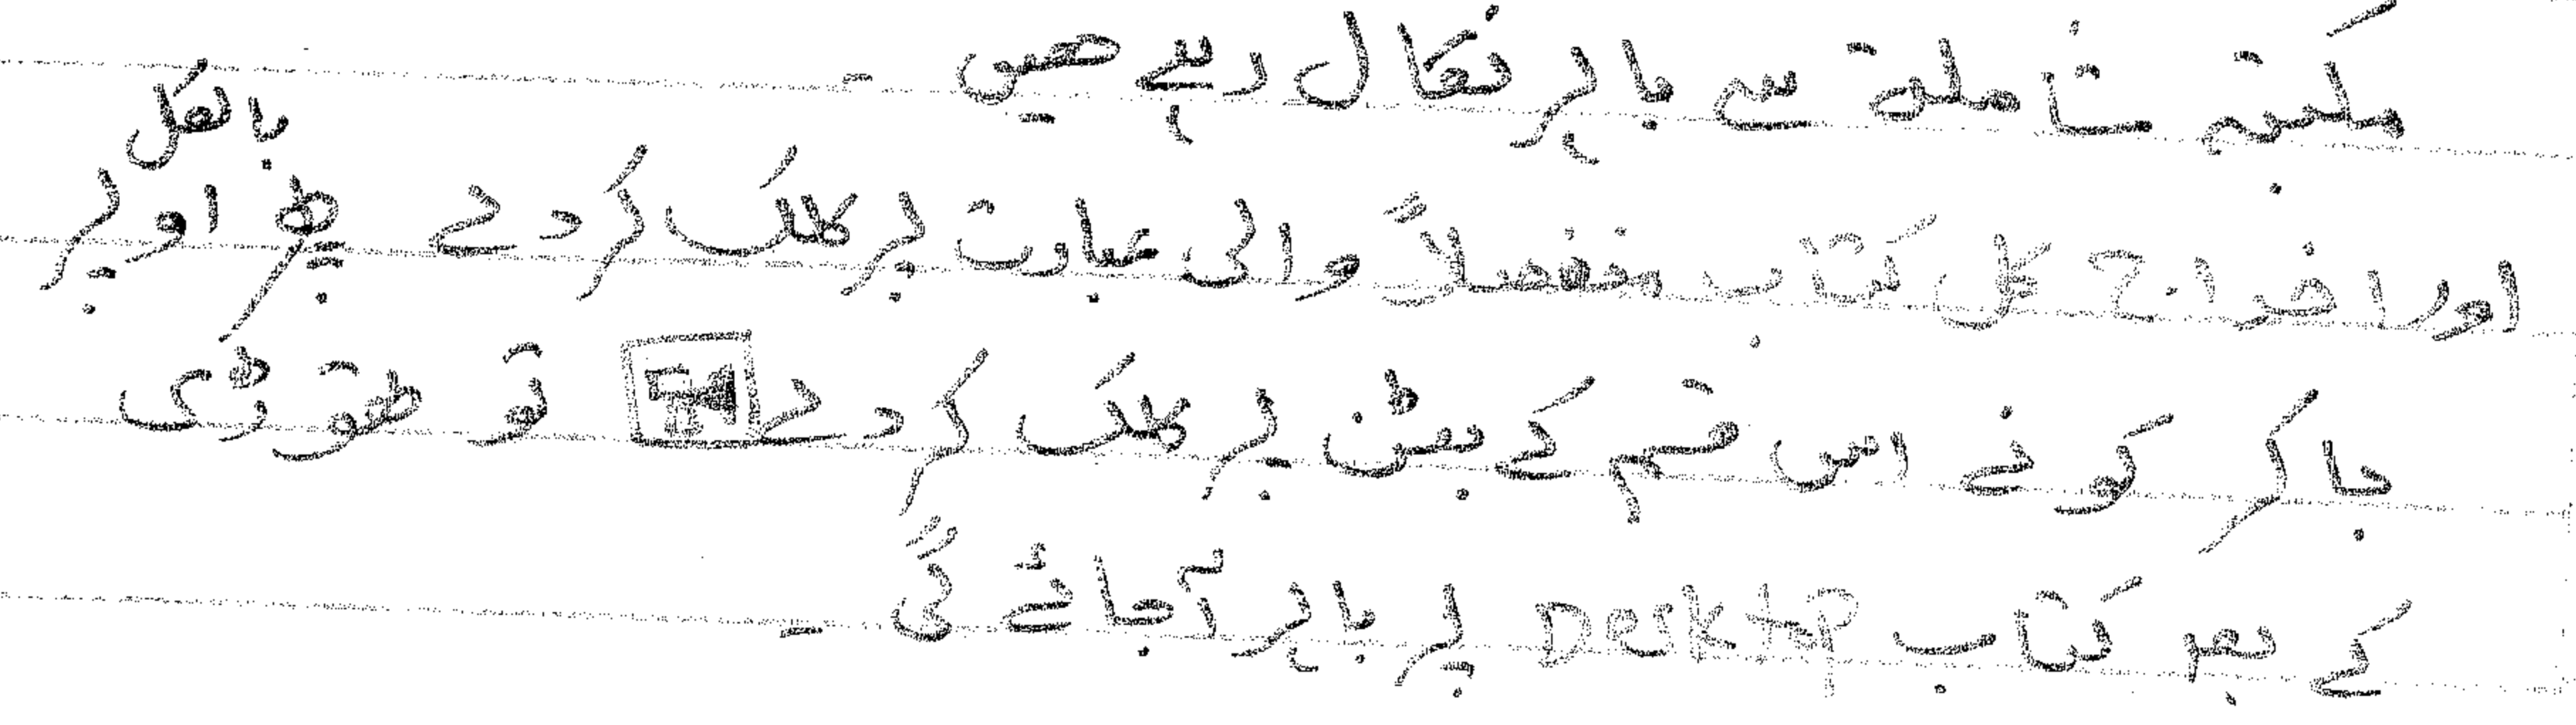 مکتبۃ شاملۃ سے باہر نکال رہے ھیں ۔
اور اخراج کل کتاب منفصلاً والی عبارت پر کلک کر دے پھر بالکل اوپر
جا کر کونے اس قسم کے بٹن پر کلک کر دے تو تھوڑی
کے بعد کتاب Desktop پر باہر آجائے گی ۔